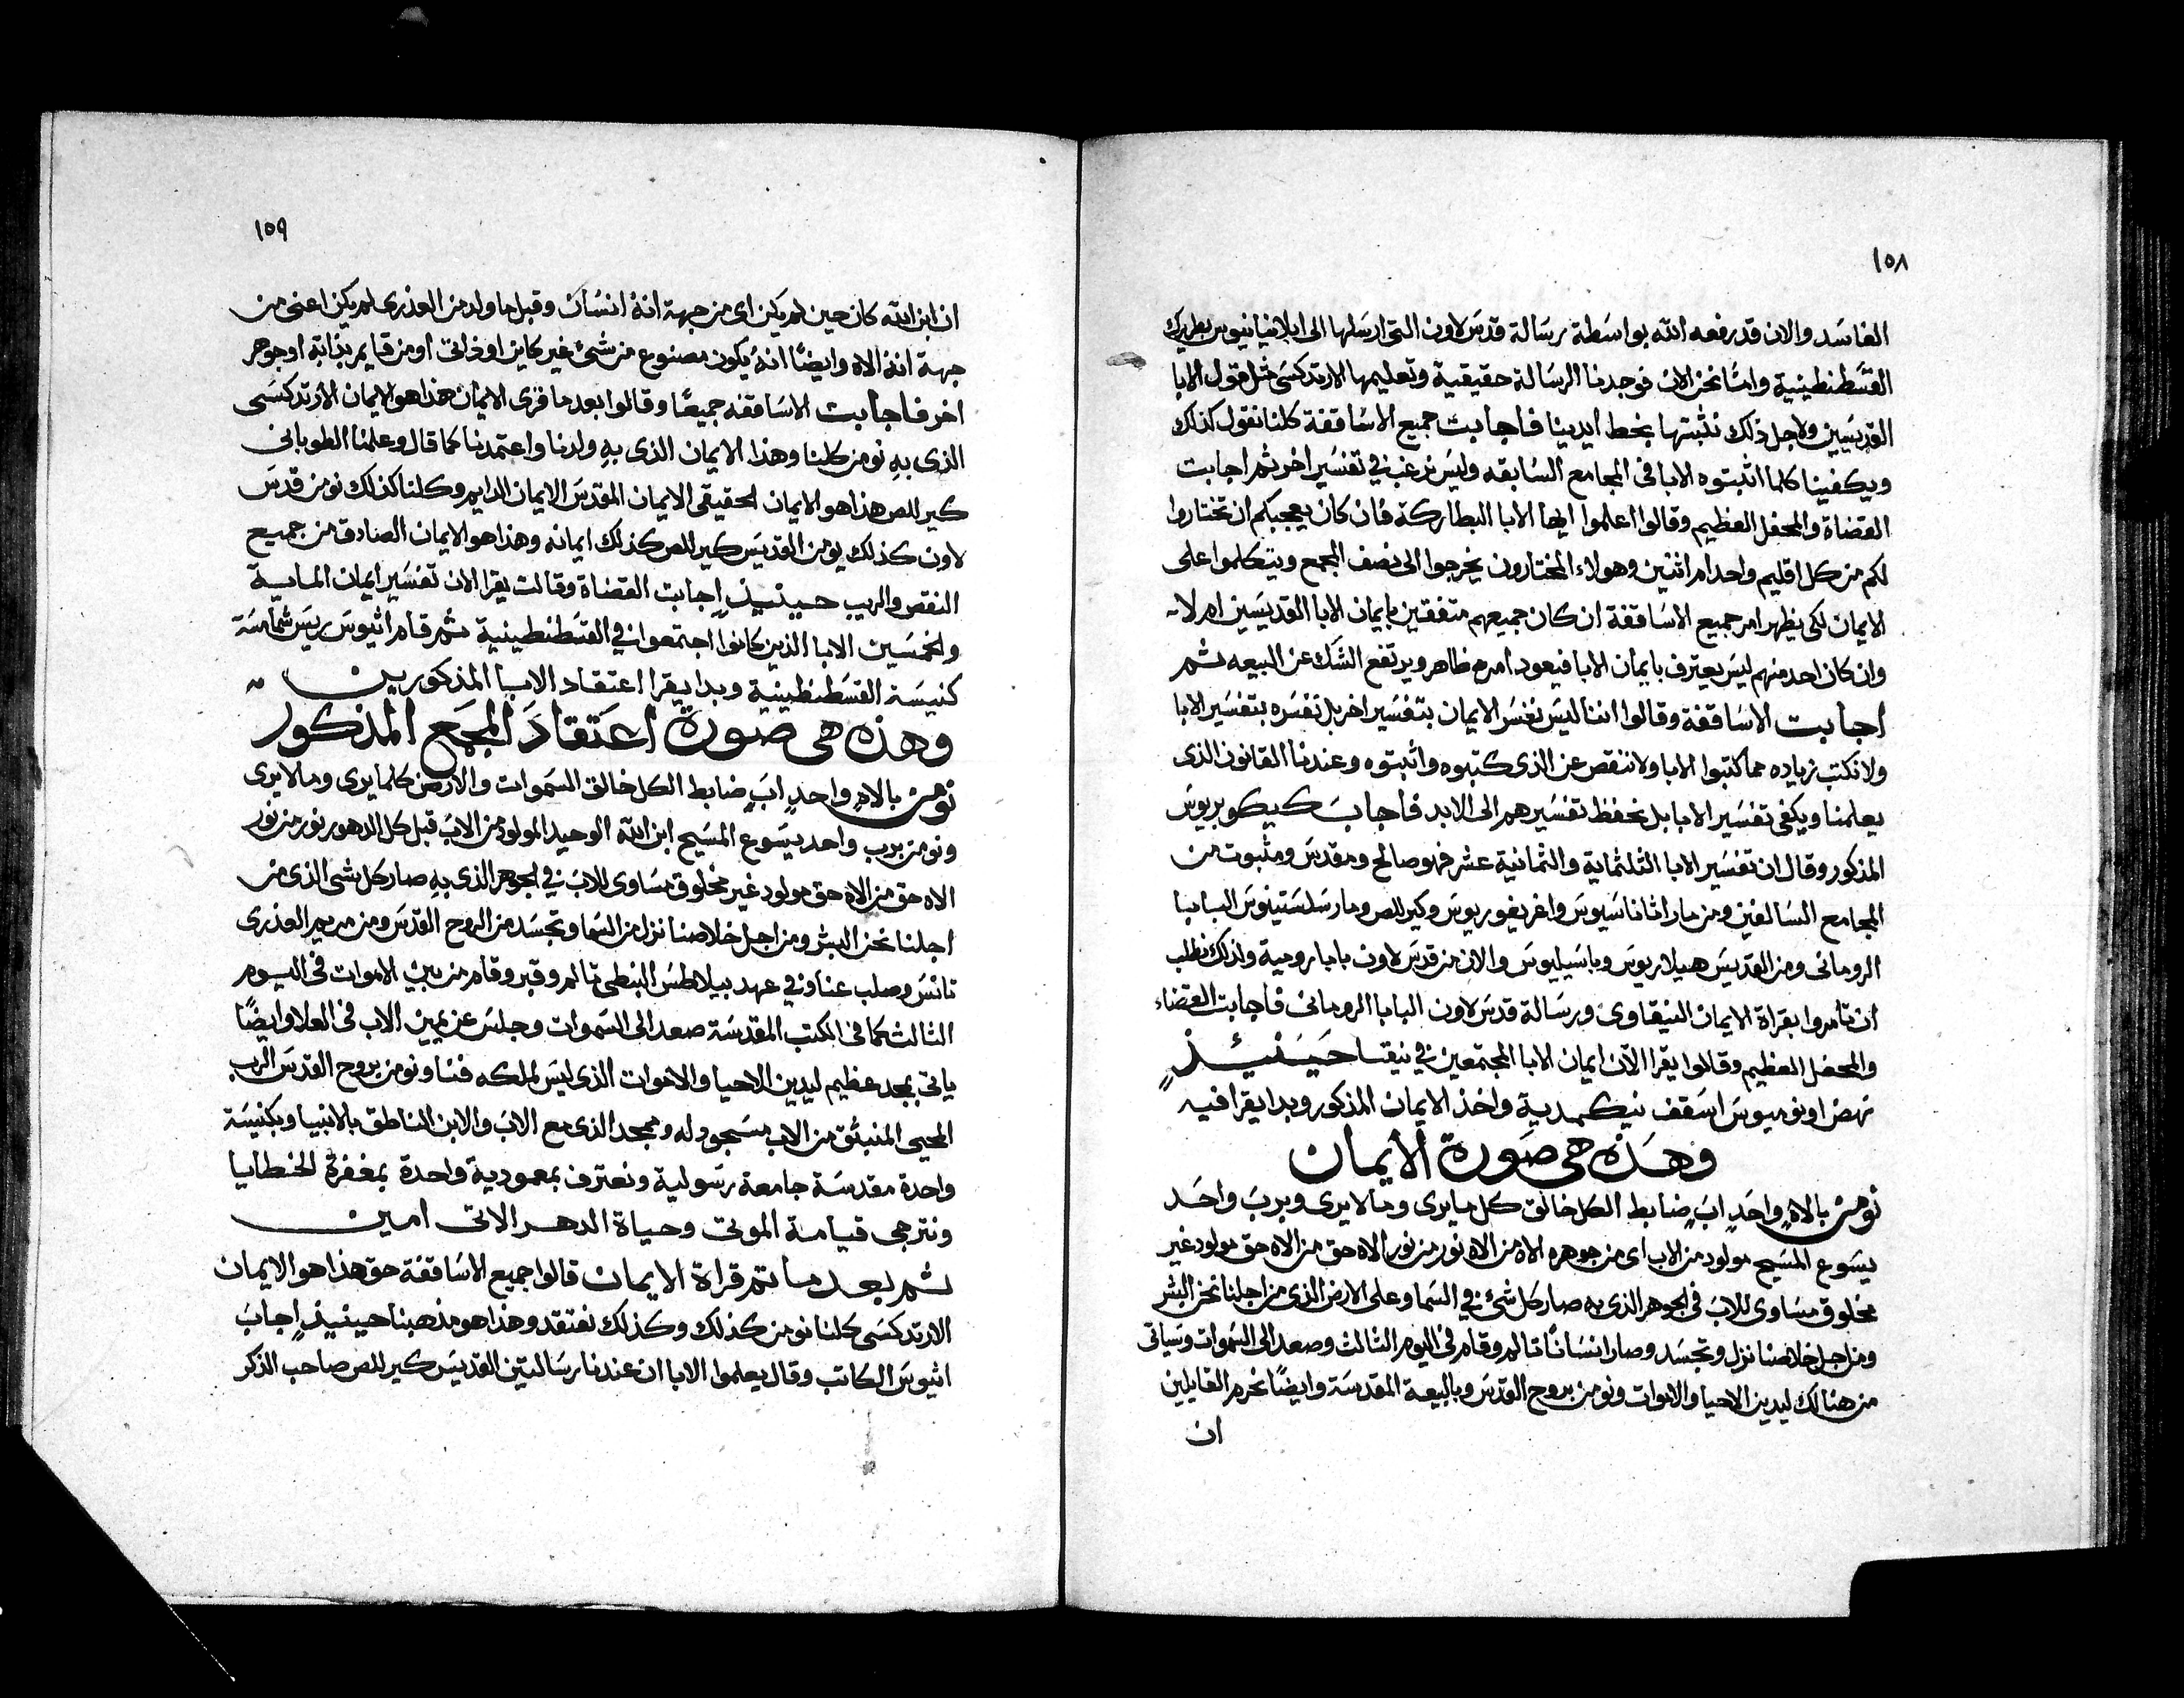 ١٥٨
الفاسَد والان قد رفعه الله بواسَطة رسَالة قدسَ لاون التى ارسَلها الى ابلافيانيوس بطريرك
القسَطنطينية وامّا نحن الان فوجدنا الرسَالة حقيقية وتعليمها الارتدكسَى مثل قول الابا
القديسَيين ولاجل ذلك نثبتها بخط ايدينا فاجابت جميع الاسَاقفة كلنا نقول كذلك
ويكفينا كلما اثبتوه الابا فى المجامع السَابقه وليسَ نرغب فى تفسَير اخر ثم اجابت
القضاة والمحفل العظيم وقالوا اعلموا ايها الابا البطاركة فان كان يعجبكم ان تختاروا
لكم من كل اقليم واحد ام اثنين وهولاء المختارون يخرجوا الى نصف المجمع ويتكلموا على
الايمان لكى يظهر امر جميع الاسَاقفة ان كان جميعهم متفقين بايمان الابا القديسَين ام لا
وان كان احد منهم ليسَ يعترف بايمان الابا فيعود امره ظاهر ويرتفع الشَك عن البيعه ثم
اجابت الاسَاقفة وقالوا اننا ليسَ نفسَر الايمان بتفسَير اخر بل نفسَره بتفسَير الابا
ولا نكتب زياده مما كتبوا الابا ولا ننقص عن الذى كتبوه واثبتوه وعندنا القانون الذى
يعلمنا ويكفى تفسَير الابا بل نحفظ تفسَيرهم الى الابد فاجابَ كيكوبريوسَ
المذكور وقال ان تفسَير الابا الثلثماية والثمانية عشر فهو صالح ومقدسَ ومثبوت من
المجامع السَالفين ومن مار اثاناسَيوسَ واغريغوريوسَ وكيرللص ومار سَلسَتينوسَ البابا
الرومانى ومن القديسَ هيلاريوسَ وباسَيليوسَ والان من قدسَ لاون بابا رومية ولذلك نطلب
ان تأمروا بقراة الايمان النيقاوى ورسَالة قدسَ لاون البابا الرومانى فاجابت القضاء
والمحفل العظيم وقالوا يقرا الآن ايمان الابا المجتمعين فى نيقيا حيَنئذٍ
نهض اونوميوسَ اسَقف نيكمدية واخذ الايمان المذكور وبدا يقرا فيه
وهَذه هى صَورة الايمان
نومن بالاهٍ واحَدٍ ابٍ ضابط الكل خالق كل ما يرى وما لا يرى وبربَ واحَد
يسَوع المسَيح مولود من الاب اى من جوهره الاه من الاه نور من نور الاه حق من الاه حق مولود غير
مخلوق مسَاوى للابَ فى الجوهر الذى به صار كل شئ فى السَما وعلى الارض الذى من اجلنا نحن البشر
ومن اجل خلاصنا نزل وتجسَد وصار انسَانًا تالم وقام فى اليوم الثالث وصعد الى السَموات وسَياتى
من هنالك ليدين الاحيا والاموات ونومن بروح القدسَ وبالبيعة المقدسَة وايضًا نحرم القايلين
ان
١٥٩
ان ابن الله كان حين لم يكن اى من جهة انهُ انسَان وقبل ما ولد من العذرى لم يكن اعنى من
جهة انهُ الاه وايضًا انهُ يكون مصنوع من شئ غير كاين او فرانى او من قايم بذاتهِ او جوهر
اخر فاجابت الاسَاقفه جميعًا وقالوا بعد ما قرى الايمان هذا هو الايمان الارتدكسَى
الذى بهِ نومن كلنا وهذا الايمان الذى بهِ ولدنا واعتمدنا كما قال وعلمنا الطوبانى
كيرللص هذا هو الايمان الحقيقى الايمان المقدسَ الايمان الدايم وكلنا كذلك نومن قدسَ
لاون كذلك يومن القديسَ كيرللص كذلك ايمانه وهذا هو الايمان الصادق من جميع
النقص والريب حينيذٍ اجابت القضاة وقالت يقرا الان تفسَير ايمان الماية
والخمسَين الابا الذين كانوا اجتمعوا فى القسَطنطينية ثم قام اثيوسَ ريسَ شمامسَة
كنيسَة القسَطنطينية وبدا يقرا اعتقاد الابا المذكورين
وهذه هى صورة اعَتقادَ المجمَع المذكور
نومن بالاهٍ واحدٍ ابٍ ضابط الكل خالق السَموات والارض كلما يرى وما لا يرى
ونومن برب واحد يسَوع المسَيح ابن الله الوحيد المولود من الابَ قبل كل الدهور نور من نور
الاه حق من الاه حق مولود غير مخلوق مسَاوى للابَ فى الجوهر الذى بهِ صار كل شى الذى من
اجلنا نحن البشر ومن اجل خلاصنا نزل من السَما وتجسَد من الروح القدسَ ومن مريم العذرى
تانسَ وصلب عنا فى عهد بيلاطسَ البنطى تالم وقبر وقام من بين الاموات فى اليوم
الثالث كما فى الكتب المقدسَة صعد الى السَموات وجلسَ عن يمين الاب فى العلا وايضًا
ياتى بمجد عظيم ليدين الاحيا والاموات الذى ليسَ لملكه فنا ونومن بروح القدسَ الرب
المحيى المنبثق من الاب مسَجود له وممجد الذى مع الابَ والابن الناطق بالانبيا وبكنيسَة
واحدة مقدسَة جامعة رسَولية ونعترف بمعمودية واحدة بمغفرة الخطايا
ونترجى قيامة الموتى وحياة الدهر الاتى امين
ثم بعد ما تم قراة الايمان قالوا جميع الاسَاقفة حق هذا هو الايمان
الارتدكسَى كلنا نومن كذلك وكذلك نعتقد وهذا هو مذهبنا حينيذٍ اجابَ
اثيوسَ الكاتب وقال يعلموا الابا ان عندنا رسَالتين القديسَ كيرللص صاحب الذكر